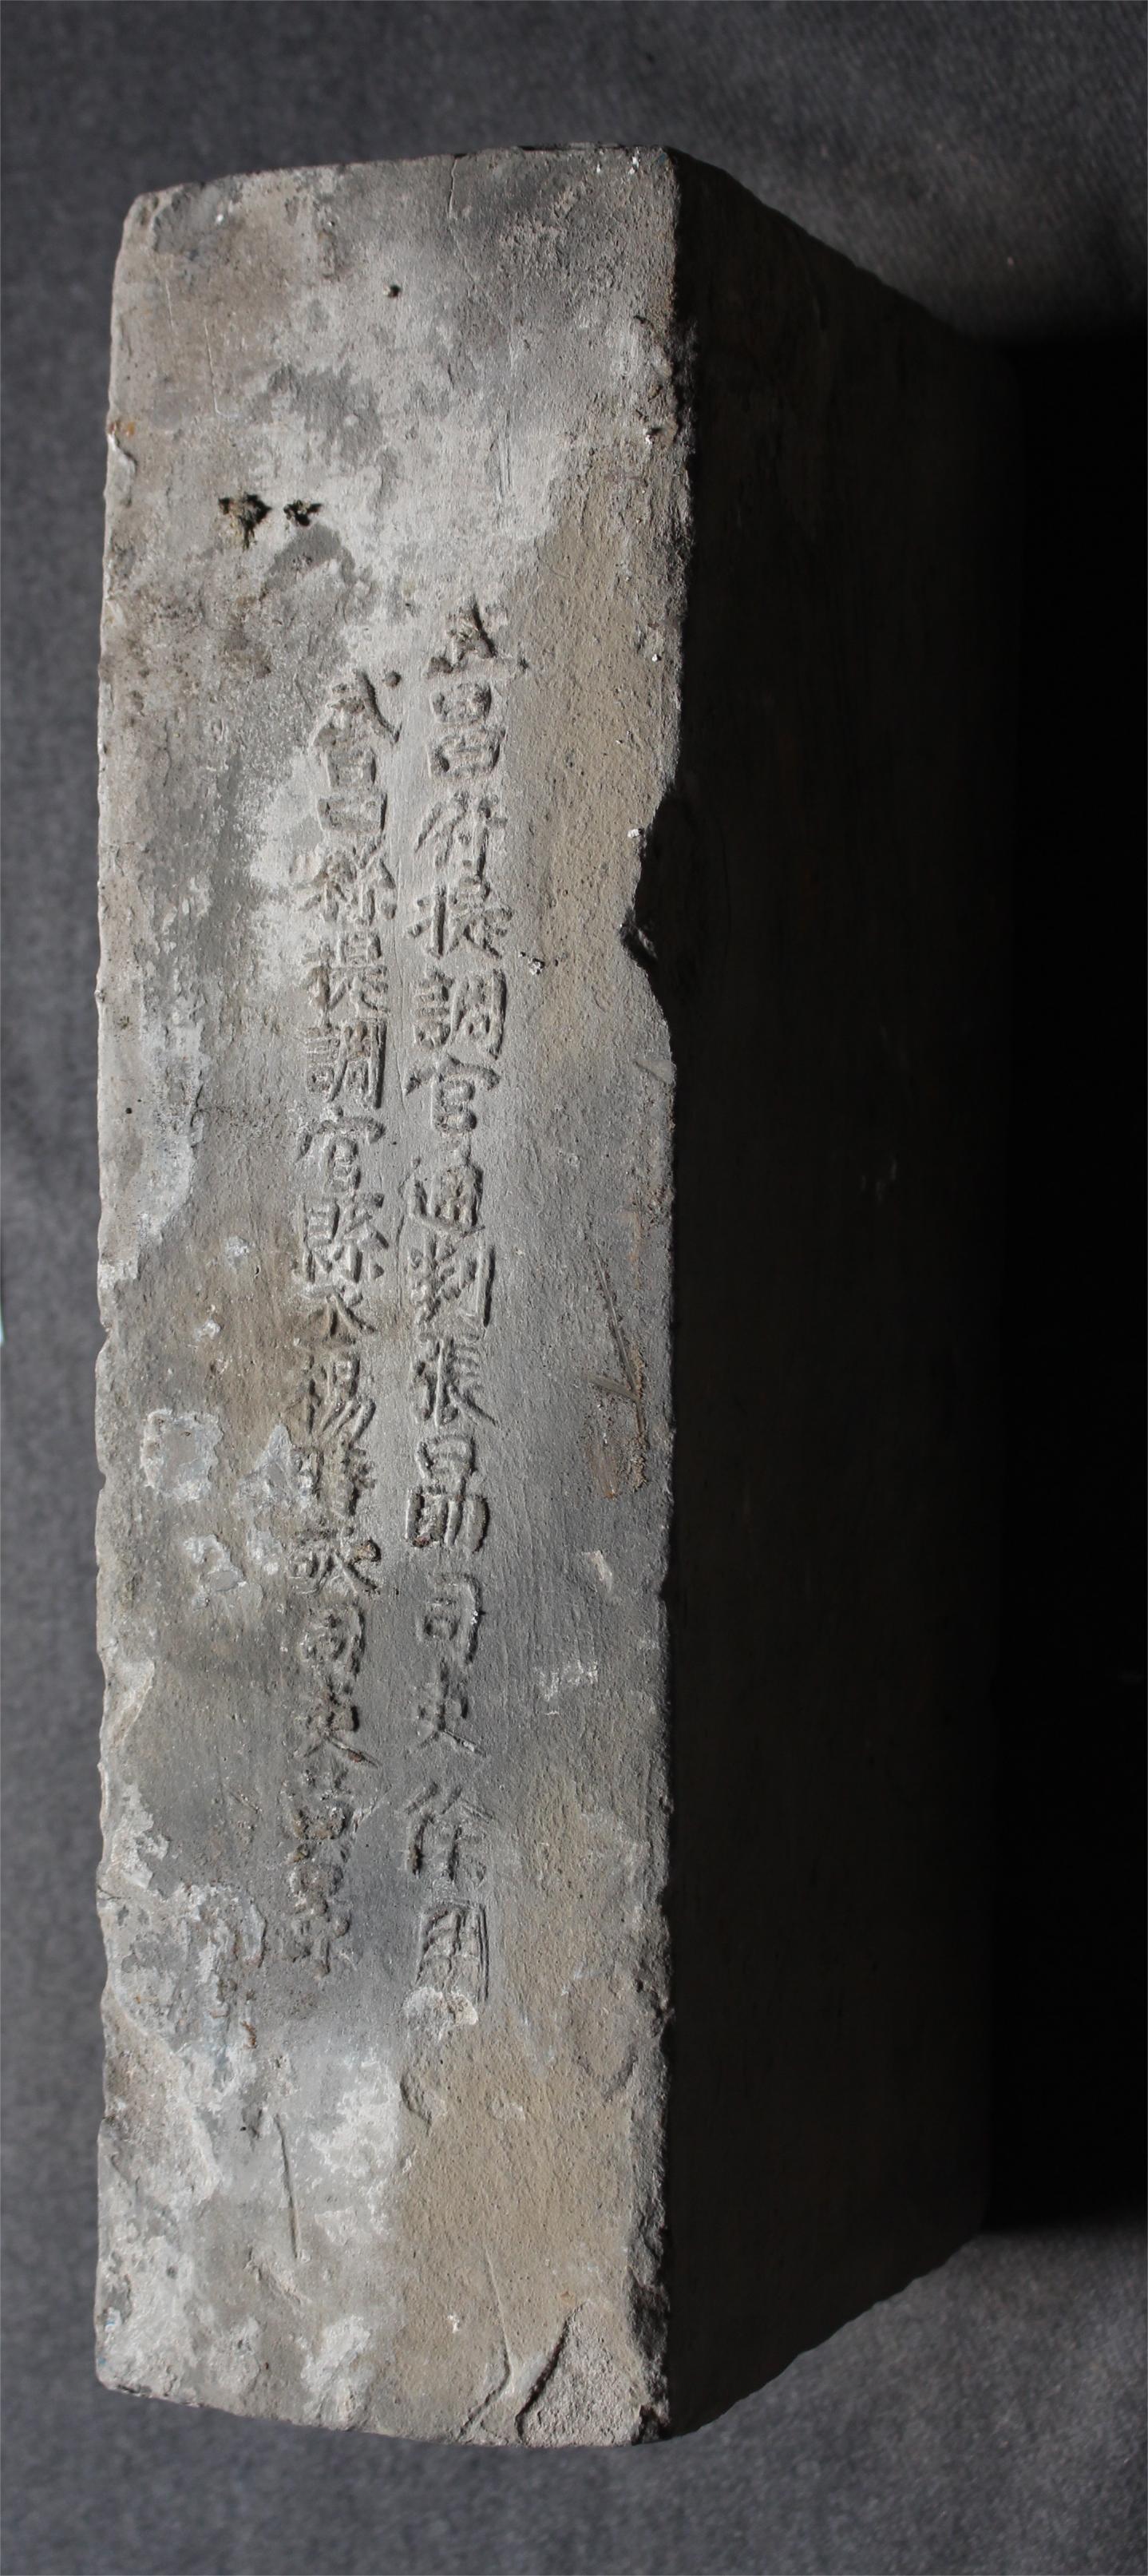 武昌府提調官通判張勗司吏徐用
武昌縣提調官縣丞楊時敬司吏